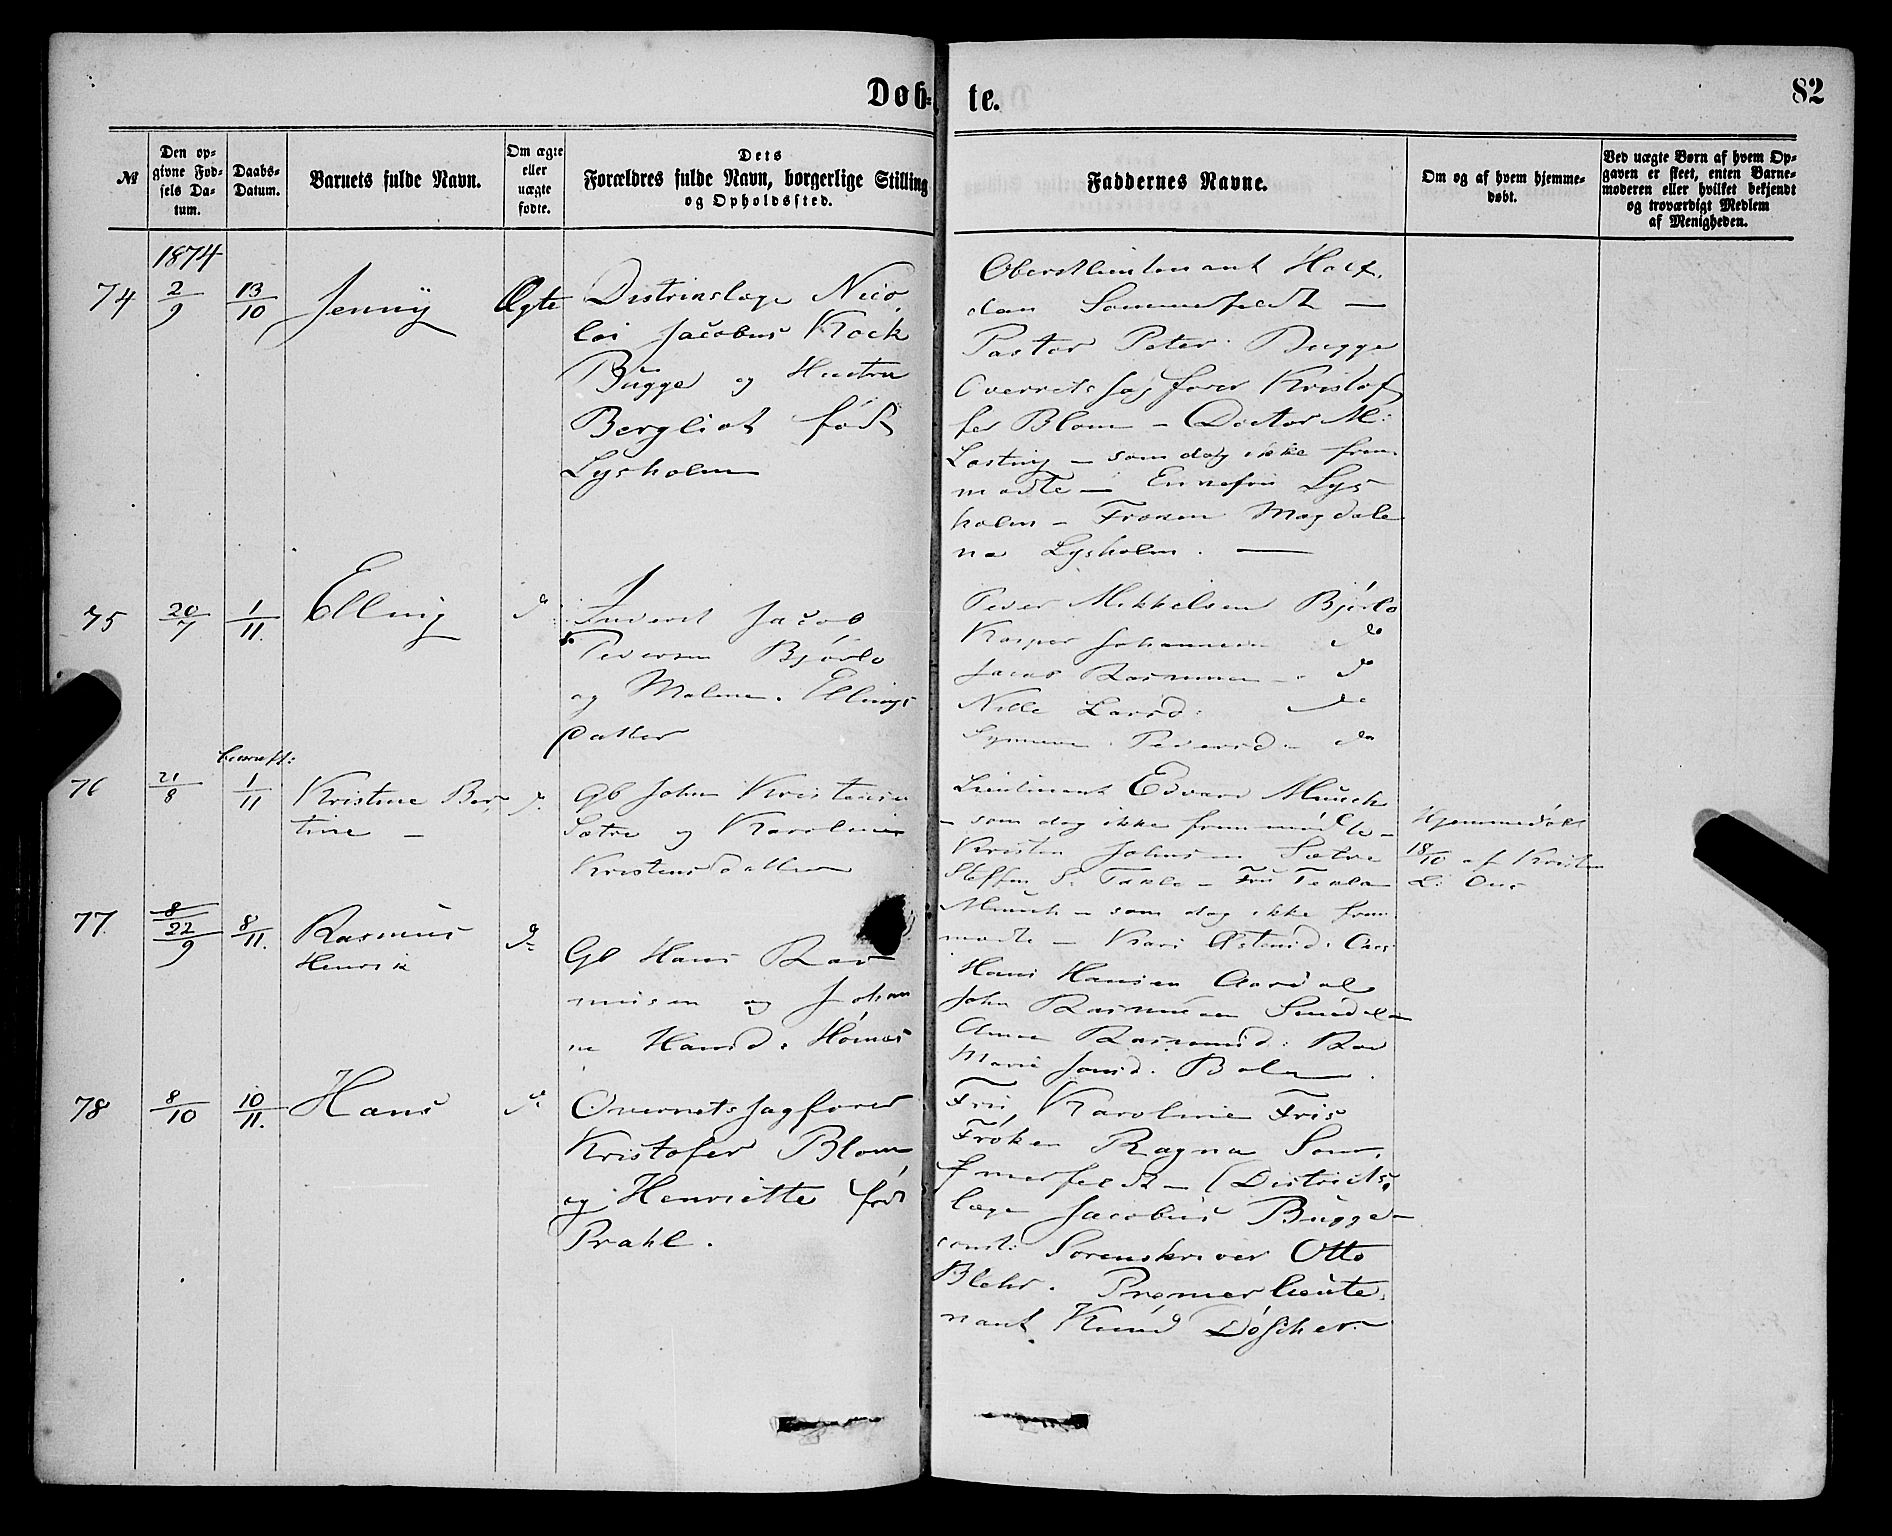 Døb-
te.
82
№
Den op-
givne Fød-
sels Da-
tum.
Daabs-
Datum.
Barnets fulde Navn.
Om ægte
eller
uægte
fødte.
Dets
Forældres fulde Navn, borgerlige Stilling
og Opholdssted.
Faddernes Navne.
Om og af hvem hjemme-
døbt.
Ved uægte Børn af hvem Op-
gaven er skeet, enten Barne-
moderen eller hvilket bekjendt
og troværdigt Medlem
af Menigheden.
1874
74
2/9
13/10
Jenny
Ægte
Nico
lai Jacobus Krock
Bugge og Hustru
Bergliot født
Lysholm
Oberstlieutenant Half
dan Sommerfeldt —
Pastor Peter Bugge
Overretssagfører Kristof
fer Blom - Doctor M:
som dog ikke frem
mødte — Lys
holm - Frøken Magdale
na Lysholm . —
75
20/7
1/11.
Elling
do
Jacob
Pedersen Bjørlo
og Malene Ellings
datter
Peder Mikkelsen Bjørlo
Kasper Johannesen do
Jacob Rasmussen - do
Nille Larsd: do
Pedersd - do
76
21/8
1/11
Kristine Ber
tine -
do
Gb John Kristensen
Sætre og Karoline
Kristensdatter
Lieutenant Edvard Munch
- som dog ikke fremmødte -
Kristen Johnsen Sætre
Steffen S. - Fru Tekla
Munch - som dog ikke frem
mødte - Kari
Hjemmedøbt
18/10 af Kristen
77
8
22/9
8/11.
Rasmus
Henrik
do
Gb Hans Ras
musen og Johan
ne Hansd. Hornes
Hans Hansen Aardal
John Rasmusen
Anna Rasmusd:
Marie
78
8/10
10/11.
Hans
do
Overretssagfører
Kristofer Blom
og Henriette født
Prahl.
Fru Karoline Friis
Frøken Ragna Som
merfeldt - Districts
læge Jacobus Bugge -
const: Sorenskriver Otto
Blehr. Premierlieute
nant Knud Døscher